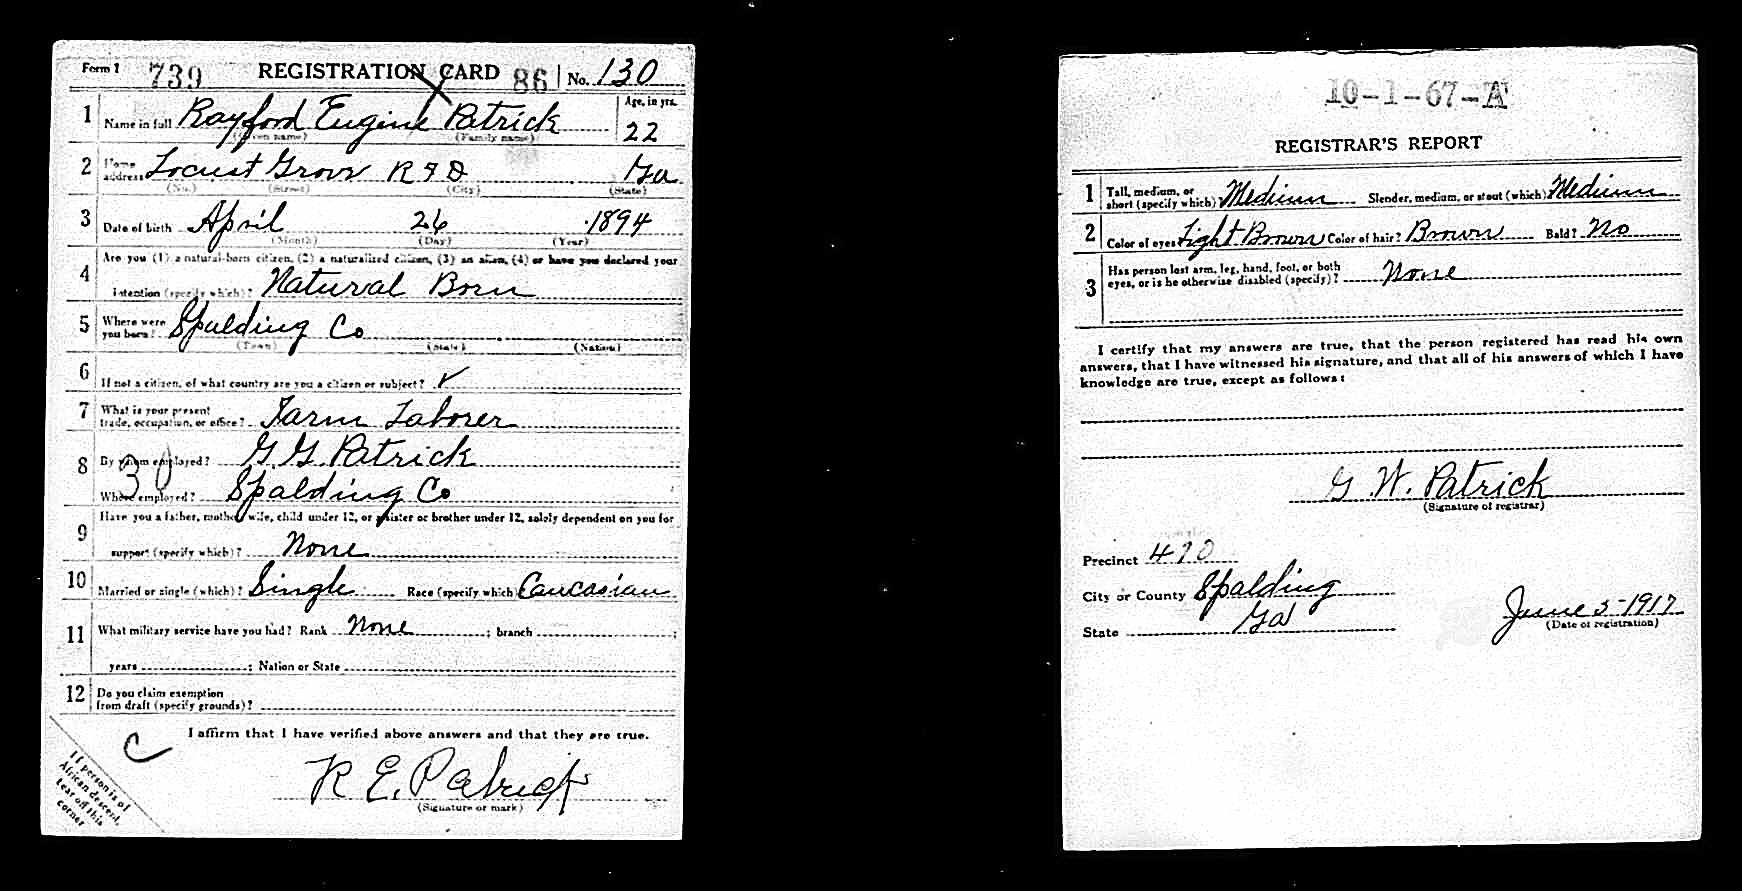 Form 1 739 REGISTRATION CARD 86 No. 130
1 Name in full Rayford Eugine Patrick Age, in yrs. 22
(Given name) (Family name)
2 Home address Locust Grove R F D Ga
(No.) (Street) (City) (State)
3 Date of birth April 26 1894
(Month) (Day) (Year)
4 Are you (1) a natural-born citizen, (2) a naturalized citizen, (3) an alien, (4) or have you declared your
intention (specify which)? Natural Born
5 Where were you born? Spalding Co
(Town) (State) (Nation)
6 If not a citizen, of what country are you a citizen or subject?
7 What is your present
trade, occupation, or office? Farm Laborer
8 By whom employed? G. G. Patrick
30
Where employed? Spalding Co
9 Have you a father, mother, wife, child under 12, or a sister or brother under 12, solely dependent on you for
support (specify which)? None
10 Married or single (which)? Single Race (specify which) Caucasian
11 What military service have you had? Rank None ; branch ;
years ; Nation or State
12 Do you claim exemption
from draft (specify grounds)?
I affirm that I have verified above answers and that they are true.
C
If person is of
African descent,
tear off this
corner
R E. Patrick
(Signature or mark)
10-1-67-A
REGISTRAR'S REPORT
1 Tall, medium, or
short (specify which) Medium Slender, medium, or stout (which) Medium
2 Color of eyes Light Brown Color of hair? Brown Bald? No
3 Has person lost arm, leg, hand, foot, or both
eyes, or is he otherwise disabled (specify)? None
I certify that my answers are true, that the person registered has read his own
answers, that I have witnessed his signature, and that all of his answers of which I have
knowledge are true, except as follows:
G. W. Patrick
(Signature of registrar)
Precinct 470
City or County Spalding
State Ga
June 5-1917
(Date of registration)